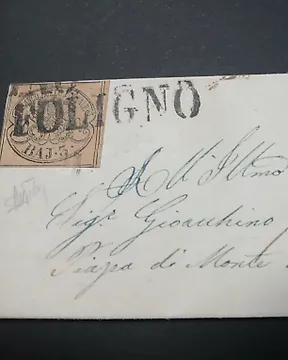 FOLIGNO
BAJ. 5
All' Illmo
Sigr. Gioacchino
Piazza di Monte